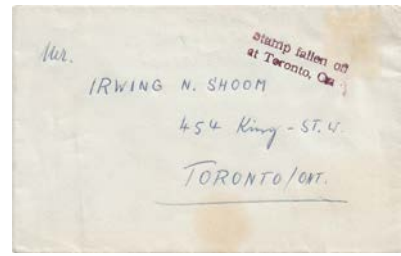 Stamp fallen off
at Toronto,
Mr.
IRWING N. SHOOM
454 King - ST. W.
TORONTO/ONT.